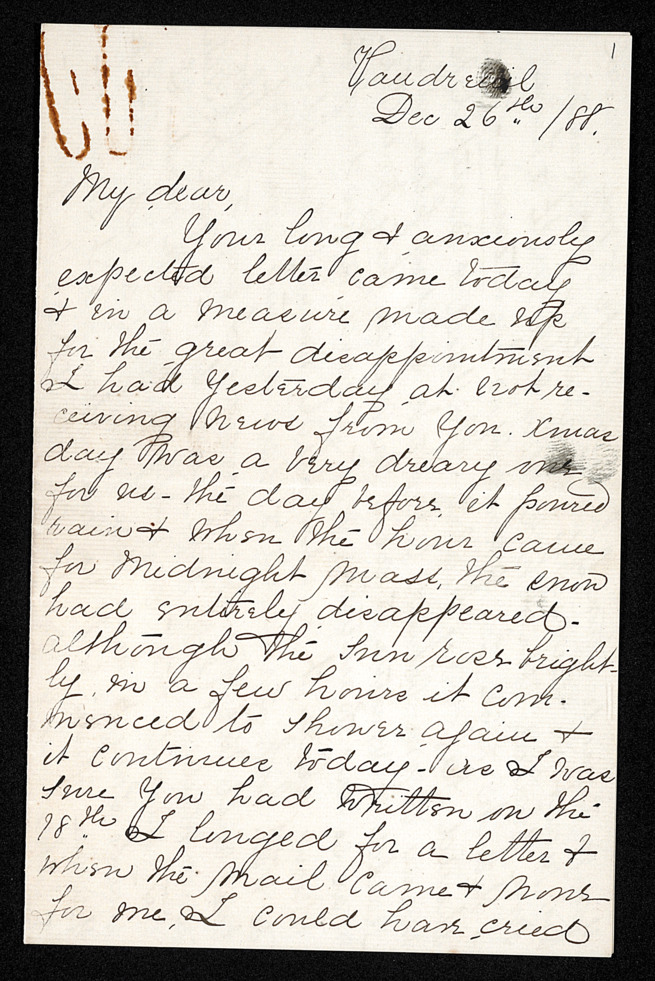 1
Vaudreuil
Dec 26th /88.
My dear,
Your long & anxiously
expected letter came today
& in a measure made up
for the great disappointment
I had yesterday at not re-
ceiving news from you. Xmas
day was a very dreary one
for us - the day before it poured
rain & when the hour came
for midnight Mass, the snow
had entirely disappeared -
although the sun rose bright-
ly, in a few hours it com-
menced to shower again &
it continues today - as I was
sure you had written on the
18th I longed for a letter &
when the mail came & none
for me, I could have cried